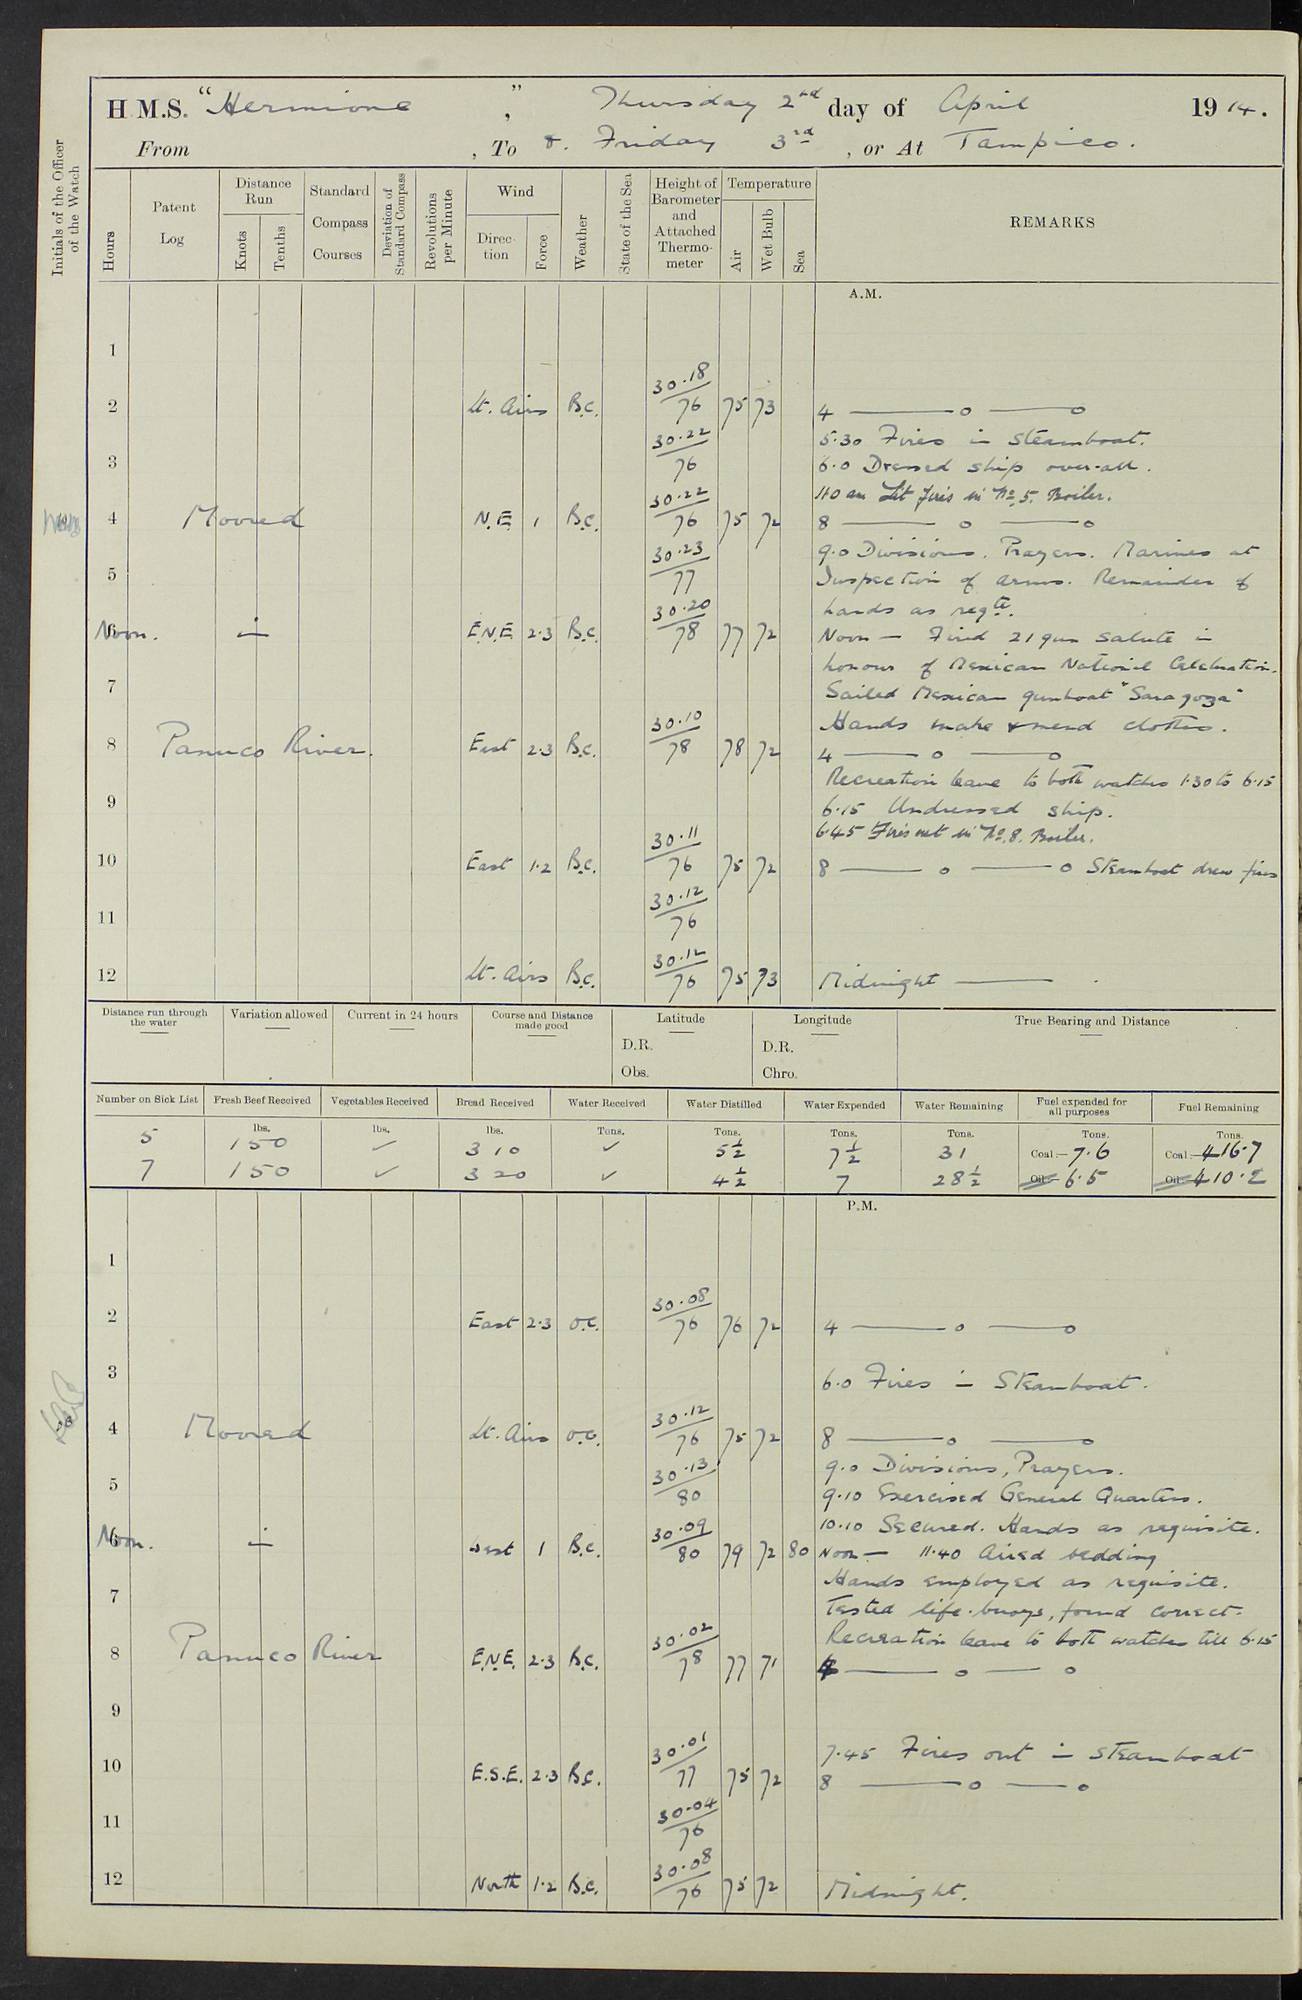 H.M.S. "Hermione", Thursday 2nd day of April 1914.
From , To & Friday 3rd , or At Tampico.
Initials of the Officer of the Watch
Hours
Patent Log
Distance Run
Knots
Tenths
Standard Compass Courses
Deviation of Standard Compass
Revolutions per Minute
Wind
Direction
Force
Weather
State of the Sea
Height of Barometer and Attached Thermometer
Temperature
Air
Wet Bulb
Sea
REMARKS
A.M.
1
2 Lt. Airs B.C. 30.18 76 75 73 4 — o — o
30.22 76 5.30 Fires in Steamboat.
3 6.0 Dressed ship over-all.
Lit fires in No. 5. Boiler.
4 Moored N.E. 1 B.C. 30.22 76 75 72 8 — o — o
30.23 77 9.0 Divisions. Prayers. Marines at
5 Inspection of arms. Remainder of
hands as reqte.
Noon. in E.N.E. 2.3 B.C. 30.20 78 77 72 Noon — Fired 21 gun salute in
honour of Mexican National Celebration.
7 Sailed Mexican gunboat "Saragoza"
Hands make & mend clothes.
8 Panuco River. East 2.3 B.C. 30.10 78 78 72 4 — o — o
Recreation leave to both watches 1.30 to 6.15
9 6.15 Undressed ship.
6.45 Fires out in No. 8. Boiler.
10 East 1.2 B.C. 30.11 76 75 72 8 — o — o Steamboat drew fires
11 30.12 76
12 Lt. Airs B.C. 30.12 76 75 73 Midnight —
Distance run through the water
Variation allowed
Current in 24 hours
Course and Distance made good
Latitude
D.R.
Obs.
Longitude
D.R.
Chro.
True Bearing and Distance
Number on Sick List Fresh Beef Received Vegetables Received Bread Received Water Received Water Distilled Water Expended Water Remaining Fuel expended for all purposes Fuel Remaining
lbs. lbs. lbs. Tons. Tons. Tons. Tons. Tons. Tons.
5 150 ✓ 310 ✓ 5½ 7½ 31 Coal:— 7.6 Coal:— 416.7
7 150 ✓ 320 ✓ 4½ 7 28½ Oil:— 6.5 Oil:— 410.2
P.M.
1
2 East 2.3 O.C. 30.08 76 76 72 4 — o — o
3 6.0 Fires in Steamboat.
4 Moored Lt. Airs O.C. 30.12 76 75 72 8 — o — o
30.13 80 9.0 Divisions, Prayers.
5 9.10 Exercised General Quarters.
10.10 Secured. Hands as requisite.
Noon. in 1 B.C. 30.09 80 79 72 80 Noon — 11.40 Aired bedding
Hands employed as requisite.
7 Tested life-buoys, found correct.
Recreation leave to both watches till 6.15
8 Panuco River E.N.E. 2.3 B.C. 30.02 78 77 71 4 — o — o
9
7.45 Fires out in Steamboat
10 E.S.E. 2.3 B.C. 30.01 77 75 72 8 — o — o
11 30.04 76
12 North 1.2 B.C. 30.08 76 75 72 Midnight.